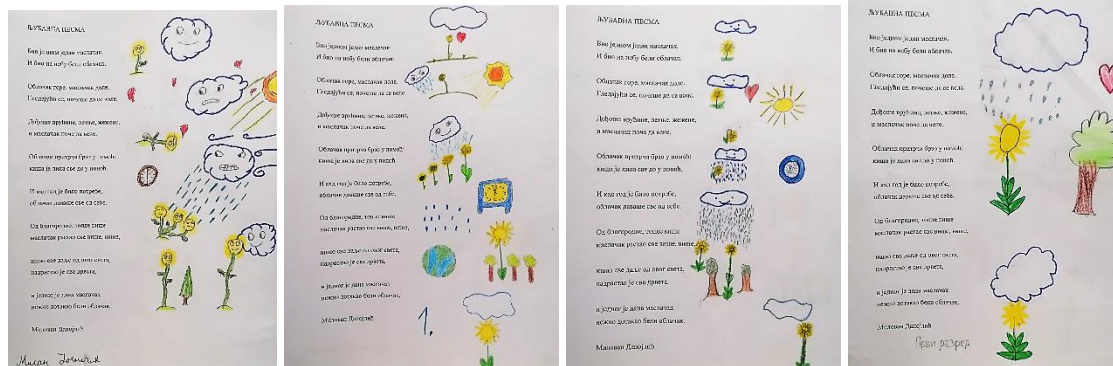 ЉУБАВНА ПЕСМА
Био једном један маслачак.
И био на небу бели облачак.
Облачак горе, маслачак доле.
Гледајући се, почеше да се воле.
Дођоше врућине, летње, жежене,
и маслачак поче да вене.
Облачак притрча брзо у помоћ:
киша је лила све до у поноћ.
И кад год је било потребе,
облачак даваше све од себе.
Од благородне, топле кише
маслачак растао све више, више,
ишао све даље од овог света,
надрастао је сва дрвета,
и једног је дана маслачак
нежно дотакао бели облачак.
Милован Данојлић
Милан
ЉУБАВНА ПЕСМА
Био једном један маслачак.
И био на небу бели облачак.
Облачак горе, маслачак доле.
Гледајући се, почеше да се воле.
Дођоше врућине, летње, жежене,
и маслачак поче да вене.
Облачак притрча брзо у помоћ:
киша је лила све до у поноћ.
И кад год је било потребе,
облачак даваше све од себе.
Од благородне, топле кише
маслачак растао све више, више,
ишао све даље од овог света,
надрастао је сва дрвета,
и једног је дана маслачак
нежно дотакао бели облачак.
Милован Данојлић
1.
ЉУБАВНА ПЕСМА
Био једном један маслачак.
И био на небу бели облачак.
Облачак горе, маслачак доле.
Гледајући се, почеше да се воле.
Дођоше врућине, летње, жежене,
и маслачак поче да вене.
Облачак притрча брзо у помоћ:
киша је лила све до у поноћ.
И кад год је било потребе,
облачак даваше све од себе.
Од благородне, топле кише
маслачак растао све више, више,
ишао све даље од овог света,
надрастао је сва дрвета,
и једног је дана маслачак
нежно дотакао бели облачак.
Милован Данојлић
ЉУБАВНА ПЕСМА
Био једном један маслачак.
И био на небу бели облачак.
Облачак горе, маслачак доле.
Гледајући се, почеше да се воле.
Дођоше врућине, летње, жежене,
и маслачак поче да вене.
Облачак притрча брзо у помоћ:
киша је лила све до у поноћ.
И кад год је било потребе,
облачак даваше све од себе.
Од благородне, топле кише
маслачак растао све више, више,
ишао све даље од овог света,
надрастао је сва дрвета,
и једног је дана маслачак
нежно дотакао бели облачак.
Милован Данојлић
Први разред